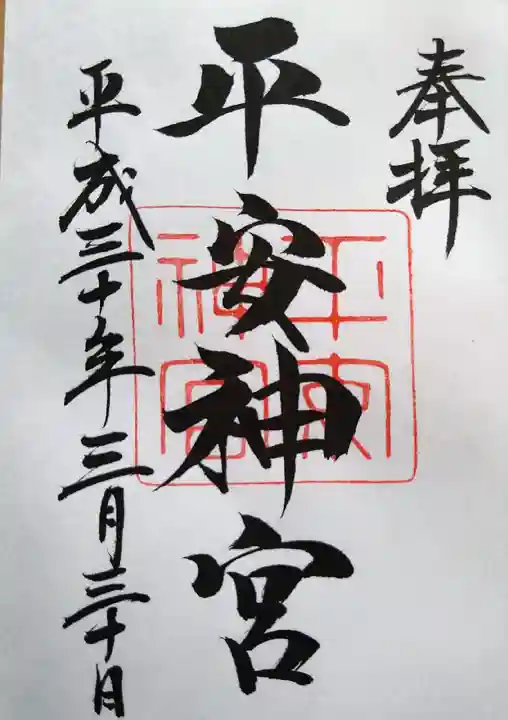 奉拝
平安神宮
平成三十年三月三十日
平安神宮